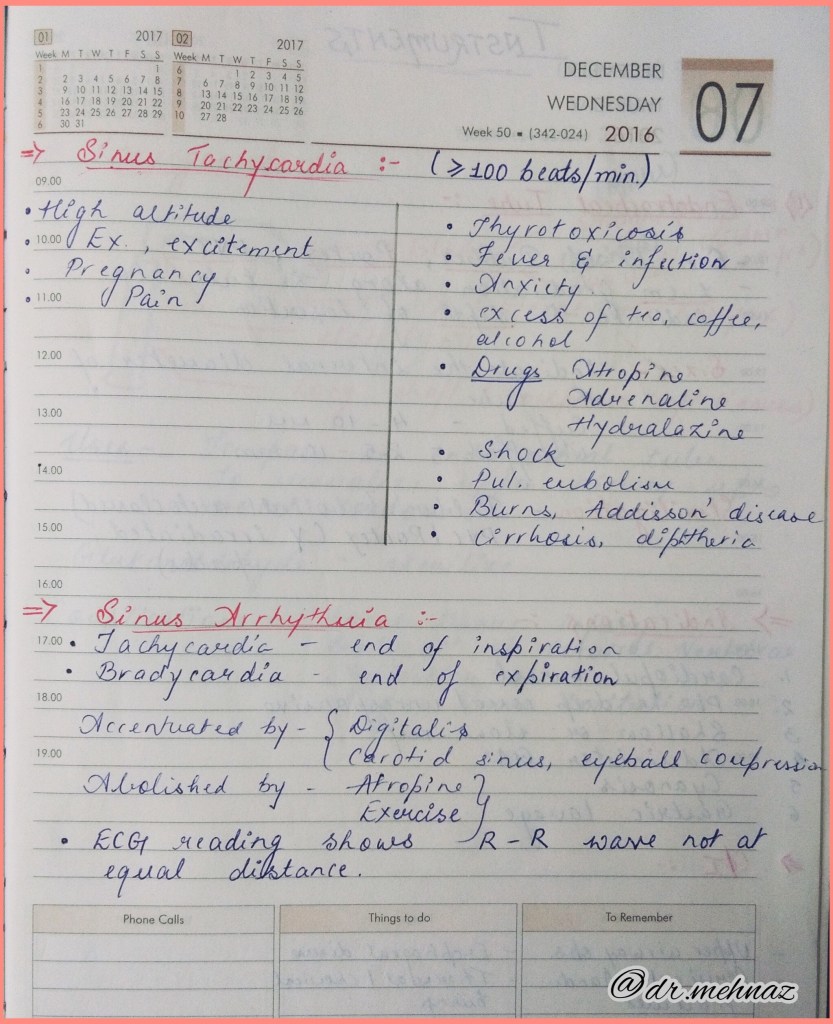 01 2017
Week M T W T F S S
1 1
2 2 3 4 5 6 7 8
3 9 10 11 12 13 14 15
4 16 17 18 19 20 21 22
5 23 24 25 26 27 28 29
6 30 31
02 2017
Week M T W T F S S
6 1 2 3 4 5
7 6 7 8 9 10 11 12
8 13 14 15 16 17 18 19
9 20 21 22 23 24 25 26
10 27 28
DECEMBER
WEDNESDAY
Week 50 ▪ (342-024) 2016
07
⇒ Sinus Tachycardia :- (≥100 beats/min.)
09.00
• High altitude
10.00
• Ex., excitement
• Pregnancy
11.00
• Pain
• Thyrotoxicosis
• Fever & infection
• Anxiety.
• excess of tea, coffee,
alcohol
12.00
• Drugs Atropine
Adrenaline
13.00
Hydralazine
• Shock
14.00
• Pul. embolism
• Burns, Addisson' disease
15.00
• Cirrhosis, diphtheria
16.00
⇒ Sinus Arrhythmia :-
17.00
• Tachycardia - end of inspiration
• Bradycardia - end of expiration
18.00
Accentuated by - { Digitalis
19.00
Carotid sinus, eyeball compression
Abolished by - Atropine }
Exercise
• ECG reading shows R-R wave not at
equal distance.
Phone Calls
Things to do
To Remember
@dr.mehnaz